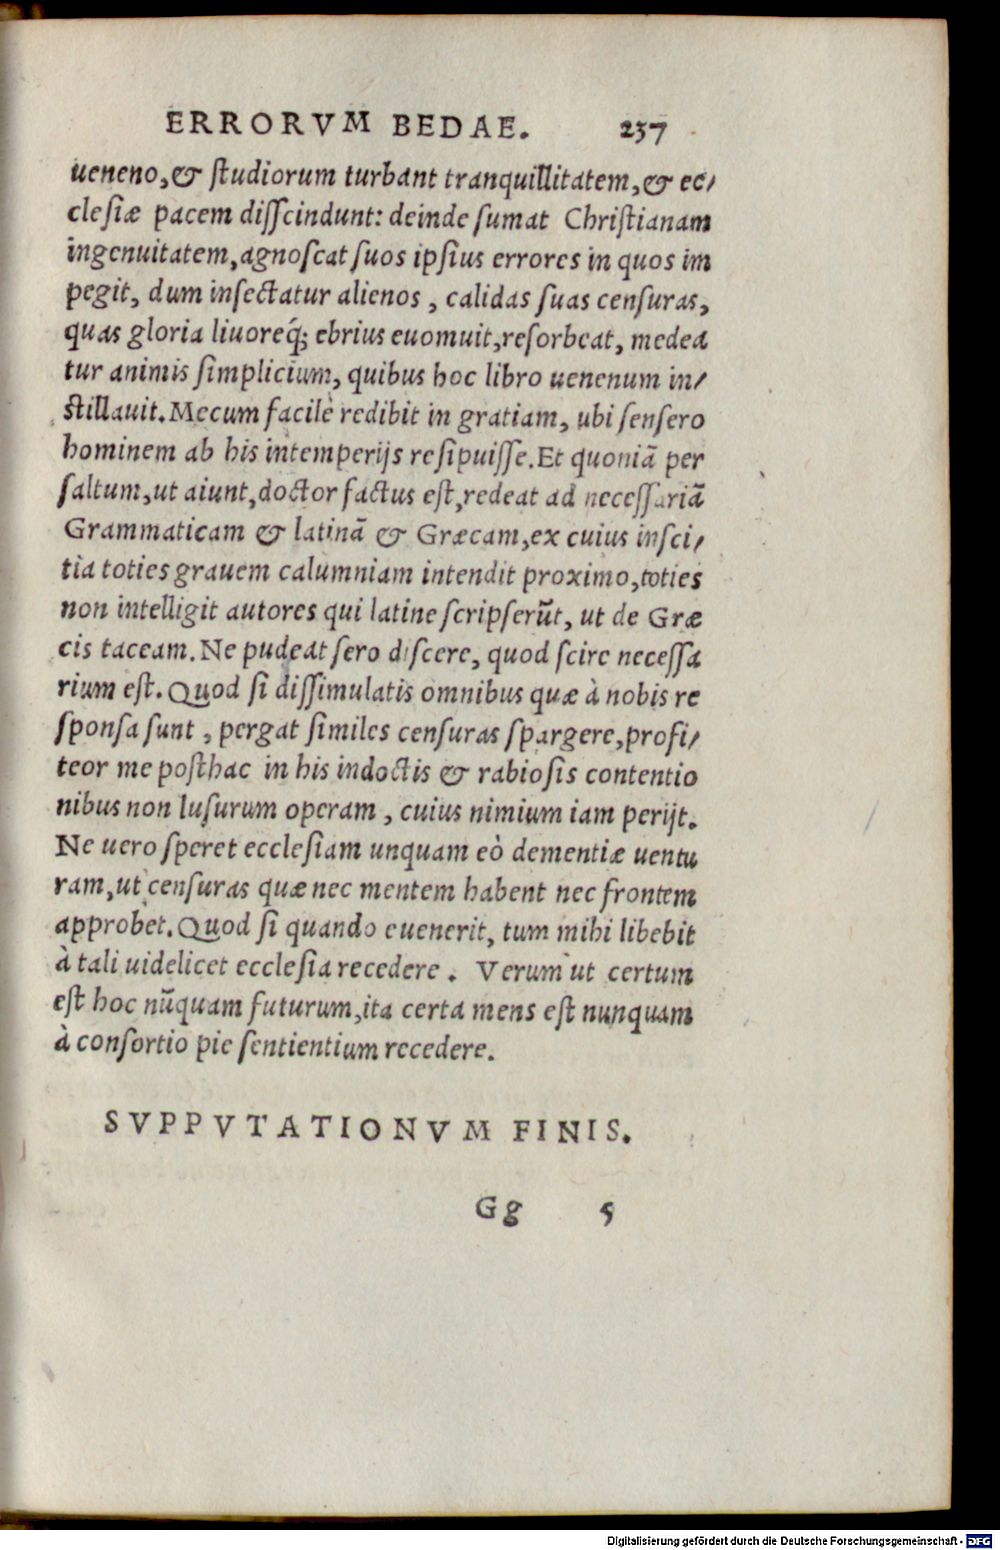 ERRORVM BEDAE. 237
ueneno,& ſtudiorum turbant tranquillitatem,& ec/
cleſiæ pacem diſſcindunt: deinde ſumat Chriſtianam
ingenuitatem,agnoſcat ſuos ipſius errores in quos im
pegit, dum inſectatur alienos, calidas ſuas cenſuras,
quas gloria liuoreq́; ebrius euomuit,reſorbeat, medea
tur animis ſimplicium, quibus hoc libro uenenum in/
ſtillauit. Mecum facile redibit in gratiam, ubi ſenſero
hominem ab his intemperijs reſipuiſſe. Et quoniā per
ſaltum,ut aiunt,doctor factus eſt,redeat ad neceſſariā
Grammaticam & latinā & Græcam,ex cuius inſci/
tia toties grauem calumniam intendit proximo,toties
non intelligit autores qui latine ſcripſerūt, ut de Græ
cis taceam. Ne pudeat ſero diſcere, quod ſcire neceſſa
rium eſt. Quod ſi diſſimulatis omnibus quæ à nobis re
ſponſa ſunt, pergat ſimiles cenſuras ſpargere,profi/
teor me poſthac in his indoctis & rabioſis contentio
nibus non luſurum operam, cuius nimium iam perijt.
Ne uero ſperet eccleſiam unquam eò dementiæ uentu
ram,ut cenſuras quæ nec mentem habent nec frontem
approbet. Quod ſi quando euenerit, tum mihi libebit
à tali uidelicet eccleſia recedere. Verum ut certum
eſt hoc nūquam futurum,ita certa mens eſt nunquam
à conſortio pie ſentientium recedere.
SVPPVTATIONVM FINIS.
Gg 5
Digitalisierung gefördert durch die Deutsche Forschungsgemeinschaft - DFG